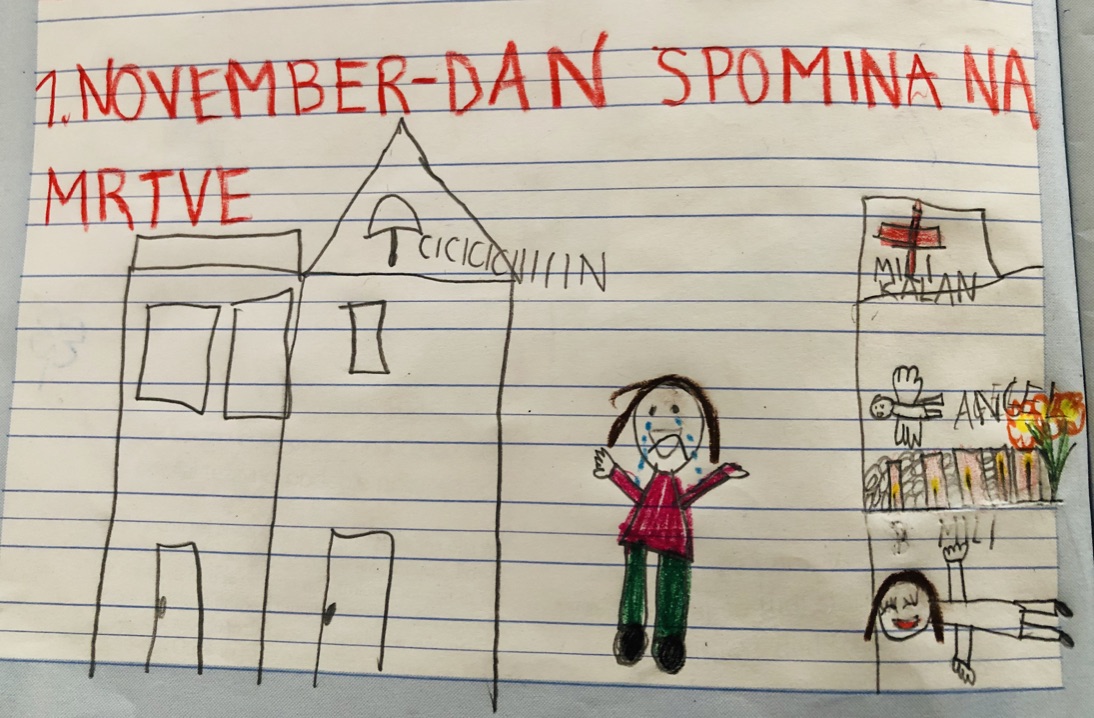 1. NOVEMBER-DAN SPOMINA NA
MRTVE
MILI
KALAN
ANGEL
MILI